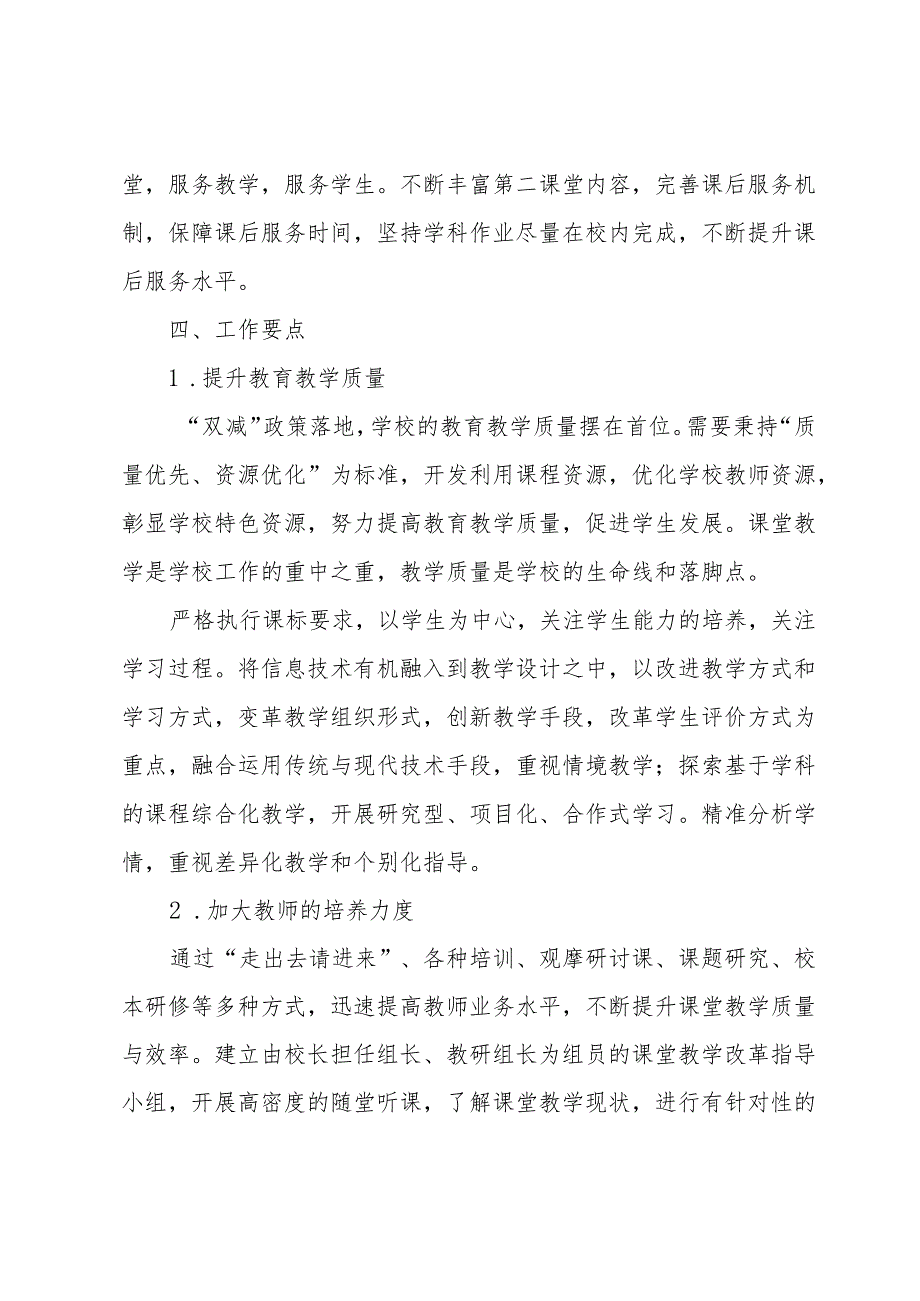 堂，服务教学，服务学生。不断丰富第二课堂内容，完善课后服务机
制，保障课后服务时间，坚持学科作业尽量在校内完成，不断提升课
后服务水平。
四、工作要点
1 .提升教育教学质量
“双减”政策落地，学校的教育教学质量摆在首位。需要秉持“质
量优先、资源优化”为标准，开发利用课程资源，优化学校教师资源，
彰显学校特色资源，努力提高教育教学质量，促进学生发展。课堂教
学是学校工作的重中之重，教学质量是学校的生命线和落脚点。
严格执行课标要求，以学生为中心，关注学生能力的培养，关注
学习过程。将信息技术有机融入到教学设计之中，以改进教学方式和
学习方式，变革教学组织形式，创新教学手段，改革学生评价方式为
重点，融合运用传统与现代技术手段，重视情境教学；探索基于学科
的课程综合化教学，开展研究型、项目化、合作式学习。精准分析学
情，重视差异化教学和个别化指导。
2 .加大教师的培养力度
通过“走出去请进来”、各种培训、观摩研讨课、课题研究、校
本研修等多种方式，迅速提高教师业务水平，不断提升课堂教学质量
与效率。建立由校长担任组长、教研组长为组员的课堂教学改革指导
小组，开展高密度的随堂听课，了解课堂教学现状，进行有针对性的